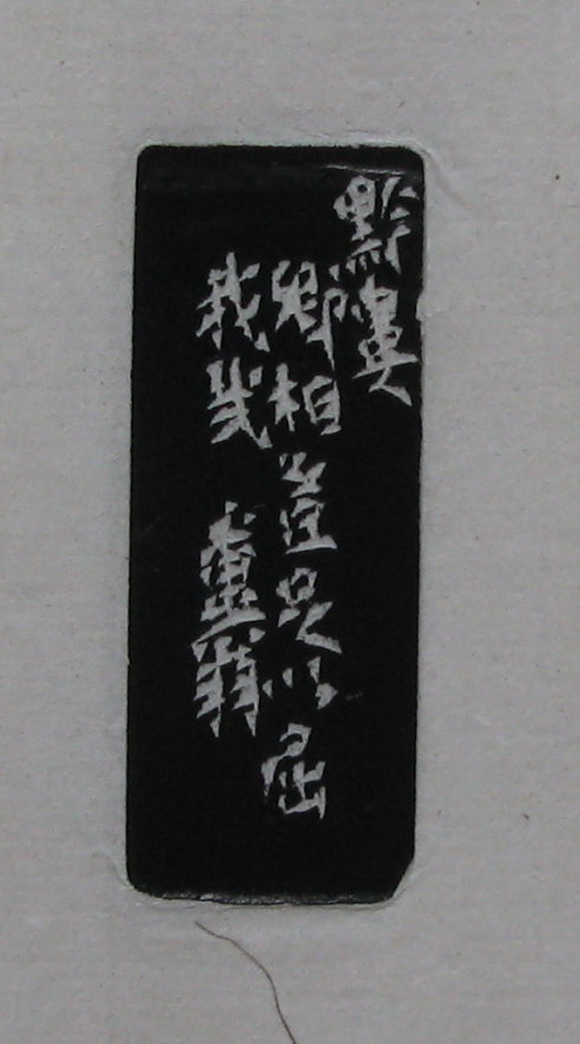 黔婁
卿相豈足以屈
我哉 翁